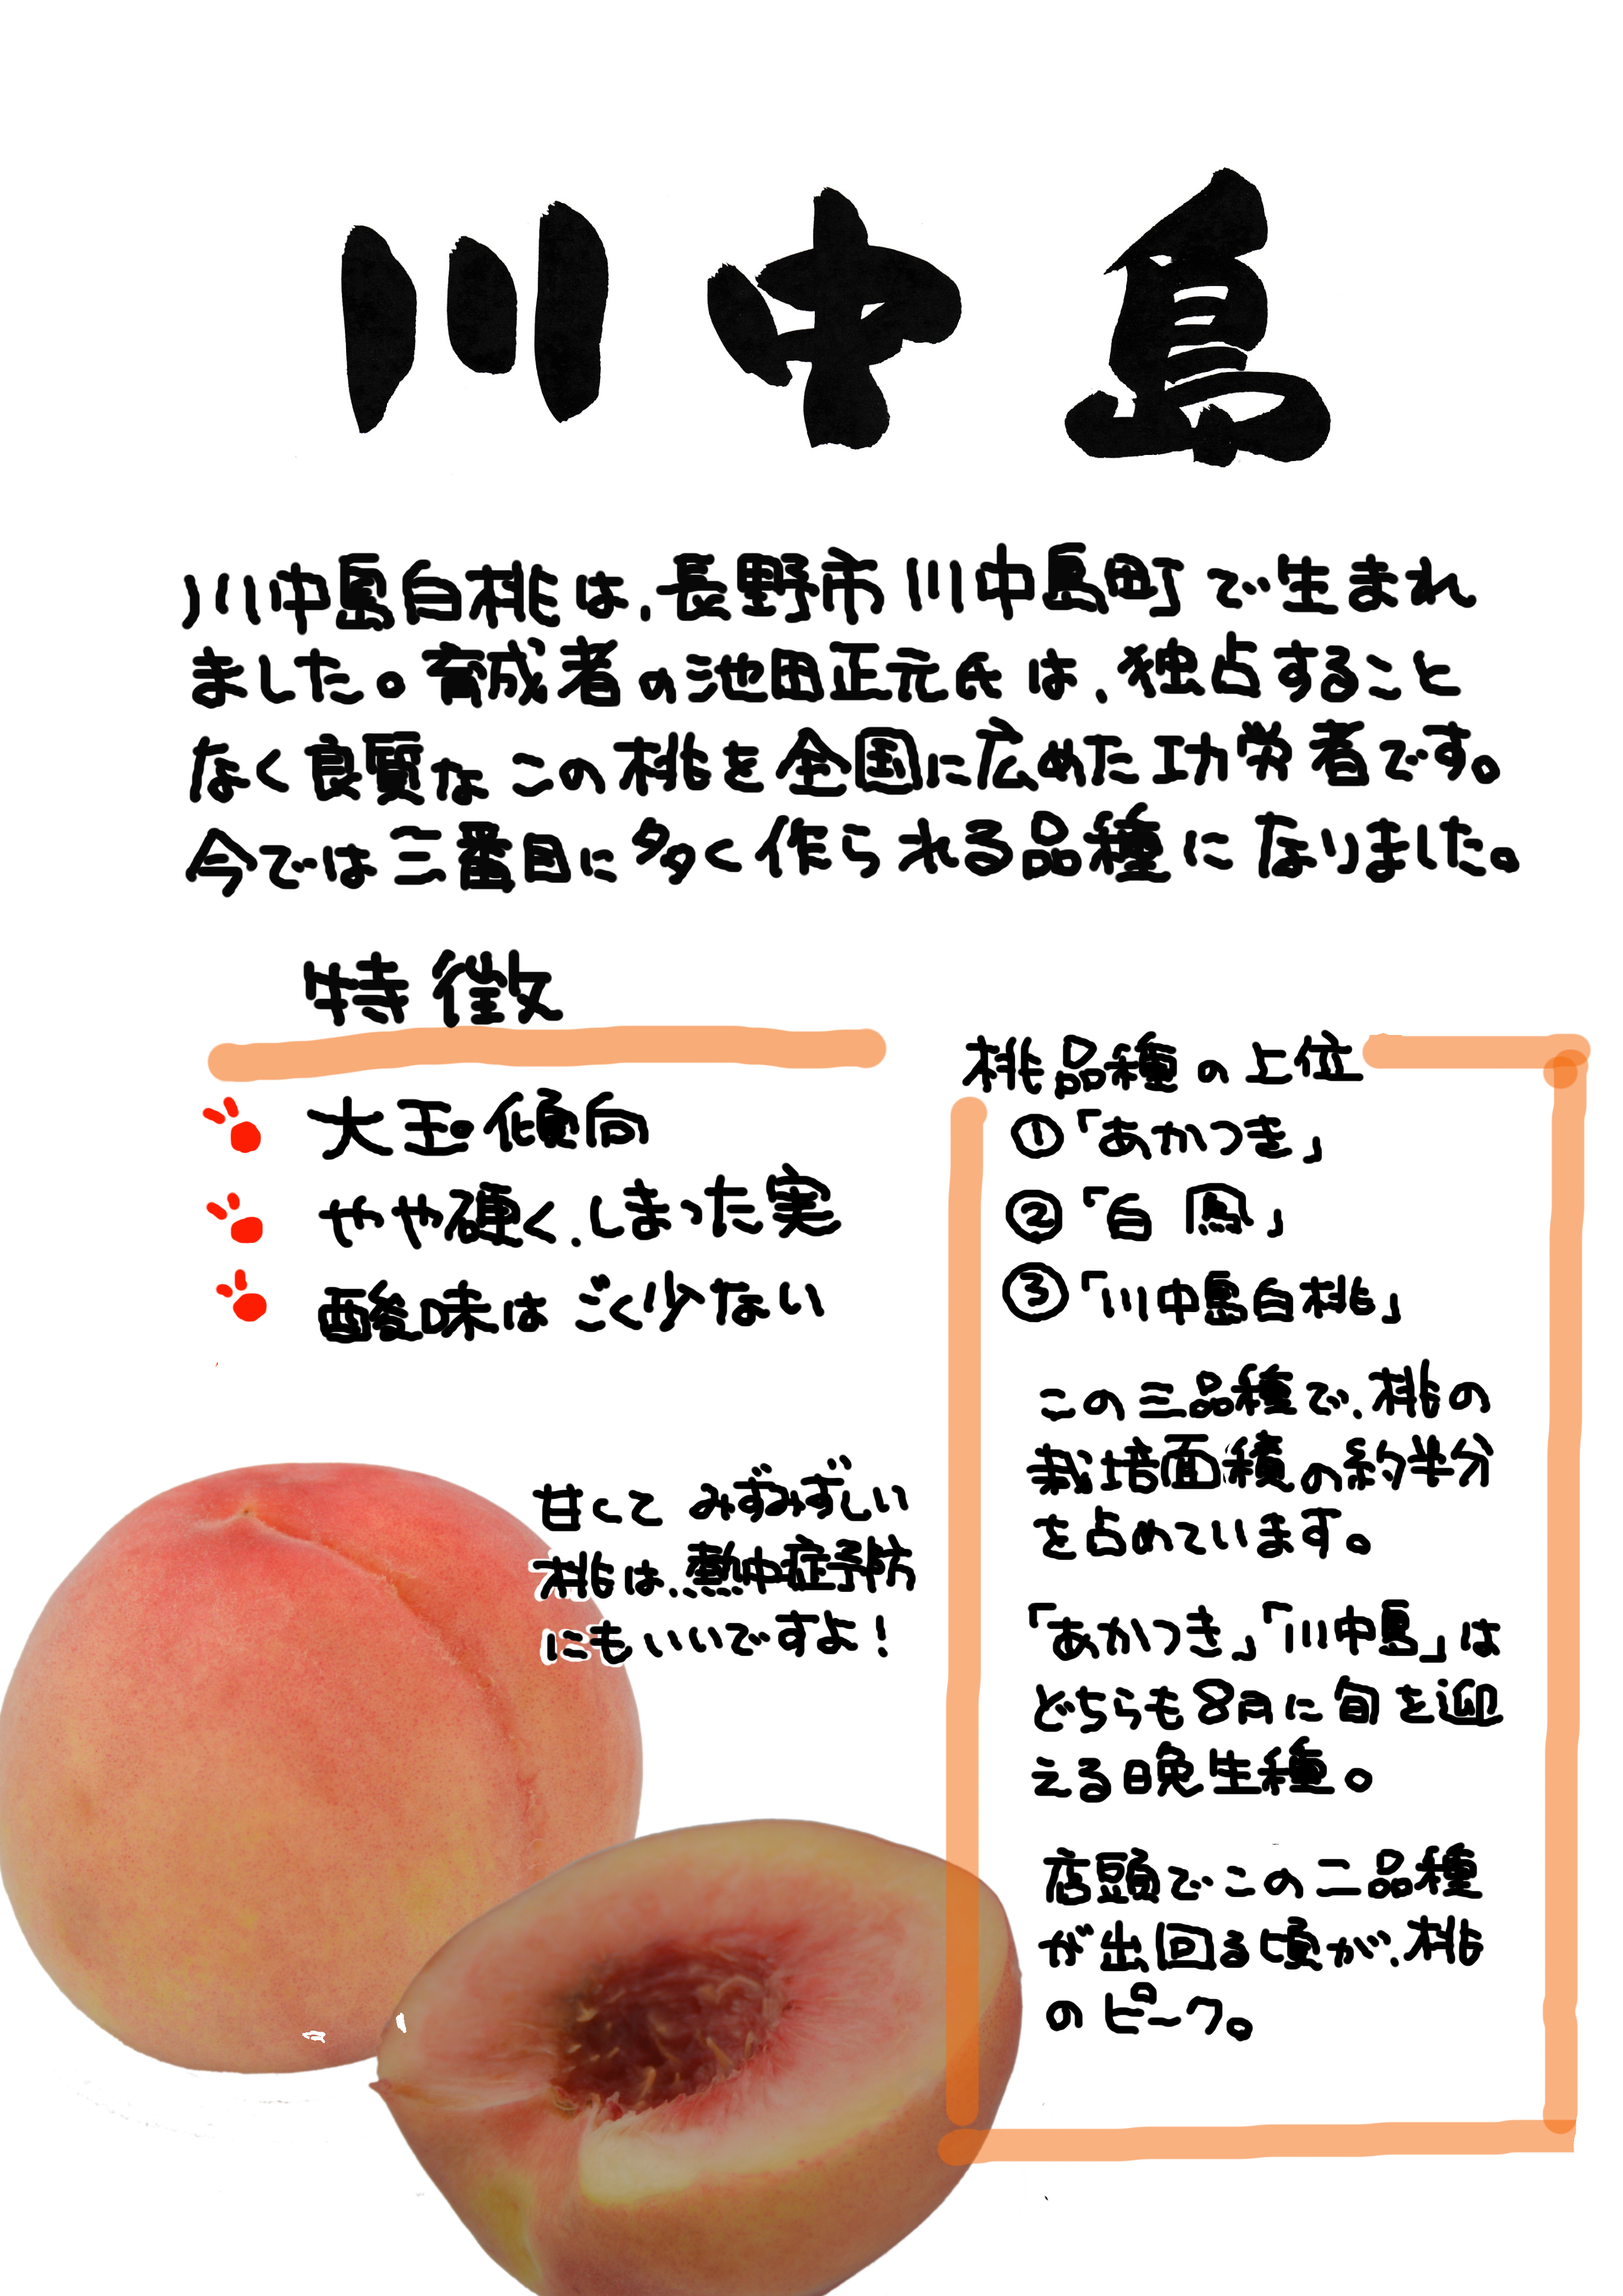 川中島
川中島白桃は、長野市川中島町で生まれ
ました。育成者の池田正元氏は、独占すること
なく良質なこの桃を全国に広めた功労者です。
今では三番目に多く作られる品種になりました。
特徴
大玉傾向
やや硬く、しまった実
酸味はごく少ない
甘くてみずみずしい
桃は、熱中症予防
にもいいですよ！
桃品種の上位
①「あかつき」
②「白鳳」
③「川中島白桃」
この三品種で、桃の
栽培面積の約半分
を占めています。
「あかつき」「川中島」は
どちらも8月に旬を迎
える晩生種。
店頭でこの二品種
が出回る頃が、桃
のピーク。